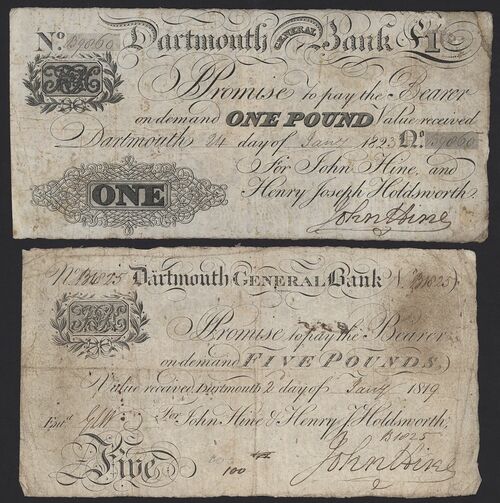 No. B9060 Dartmouth GENERAL Bank £1
I Promise to pay the Bearer
on demand ONE POUND Value received
Dartmouth 24 day of Jany 1823 No. B9060
For John Hine, and
Henry Joseph Holdsworth
ONE
John Hine
No. B1025 Dartmouth GENERAL Bank N. B1025
I Promise to pay the Bearer
on demand FIVE POUNDS,
Value received, Dartmouth 2 day of Jany 1819
Entd. For John Hine & Henry J. Holdsworth,
B1025
Five
100
John Hine